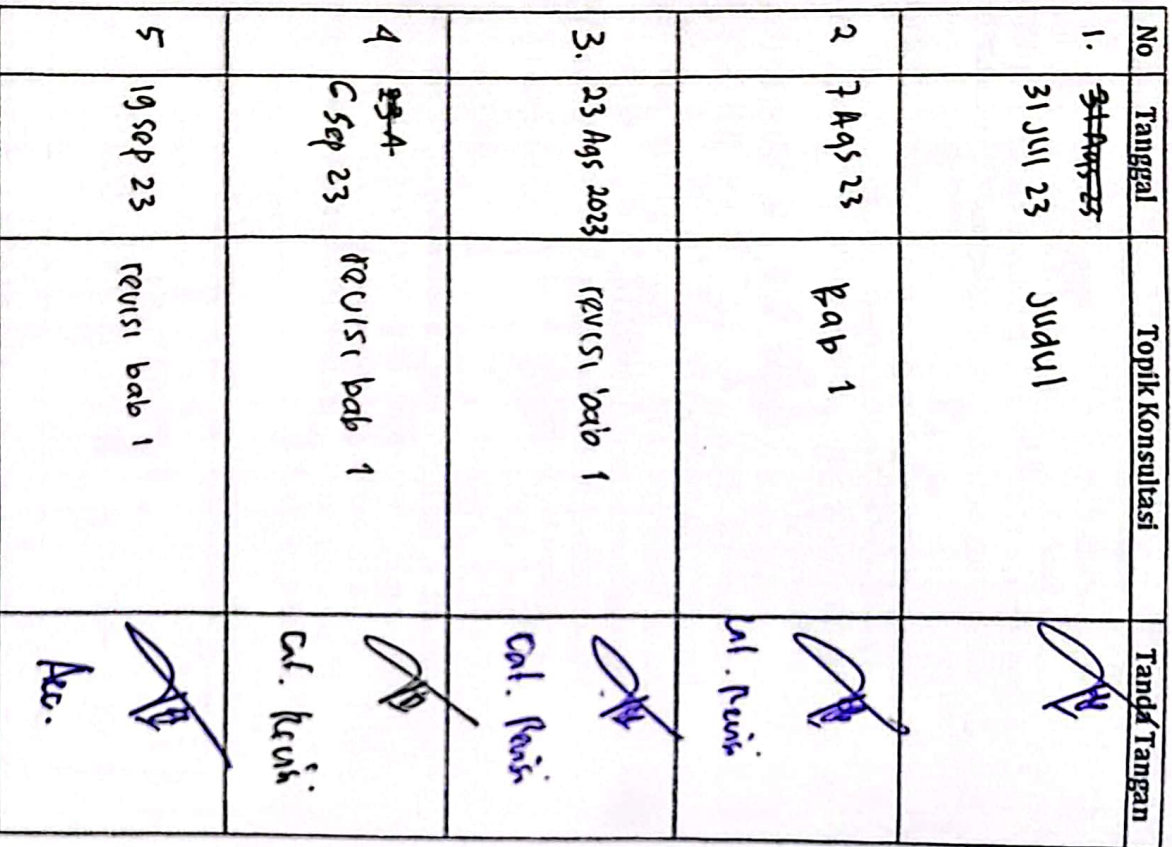 No Tanggal Topik Konsultasi Tanda Tangan
1. 31 Ags 23
31 Jul 23 Judul
2 7 Ags 23 Bab 1
Cat. Revisi
3. 23 Ags 2023 revisi bab 1
Cat. Revisi
4
6 Sep 23 revisi bab 1
Cat. Revisi.
5 19 Sep 23 revisi bab 1
Acc.